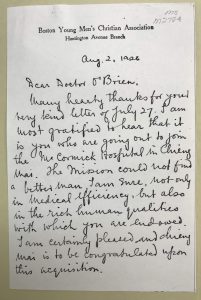 Boston Young Men's Christian Association
Huntington Avenue Branch
Aug. 2, 1926
Dear Doctor O'Brien,
Many hearty thanks for your
very kind letter of July 27. I am
most gratified to hear that it
is you who are going out to join
the McCormick Hospital in Chieng
Mai. The Mission could not find
a better man, I am sure, not only
in Medical efficiency, but also
in the rich human qualities
with which you are endowed.
I am certainly pleased and Chieng
Mai is to be congratulated upon
this acquisition.